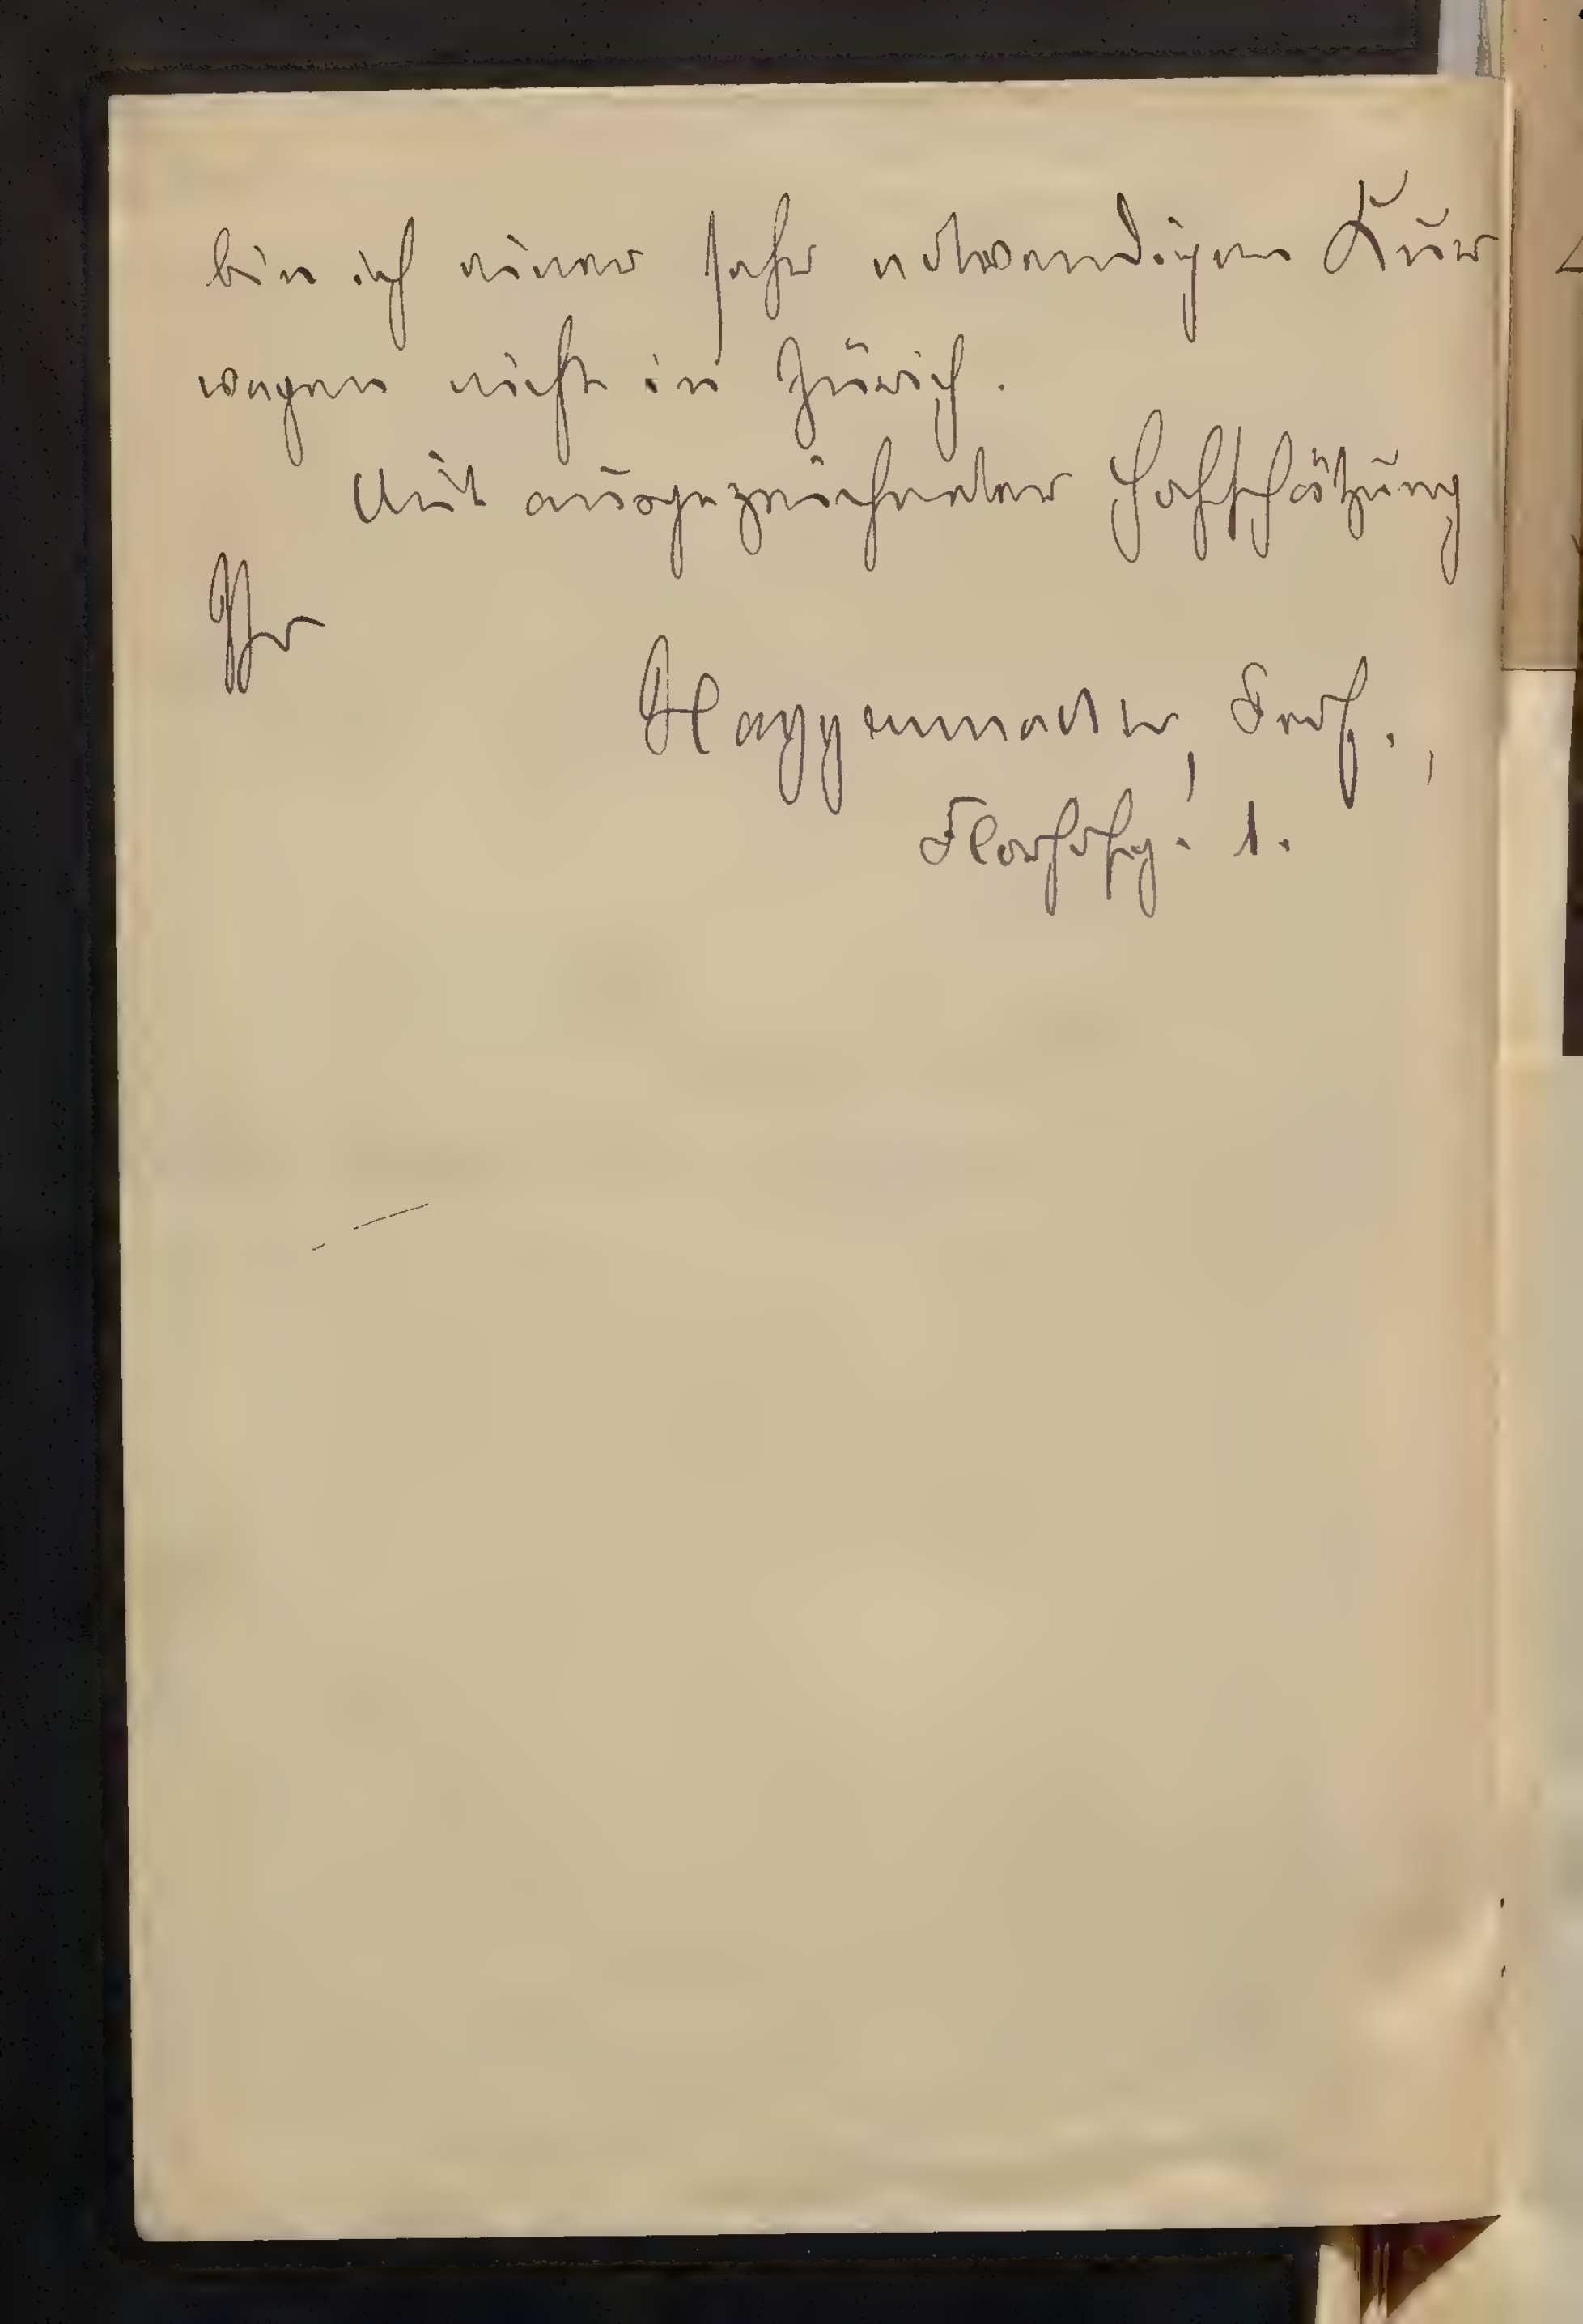 bin ich einer sehr notwendigen Kur
wegen nicht in Zürich.
Mit ausgezeichneter Hochschätzung
Ihr
Haggenmacher, Prof.,
1.